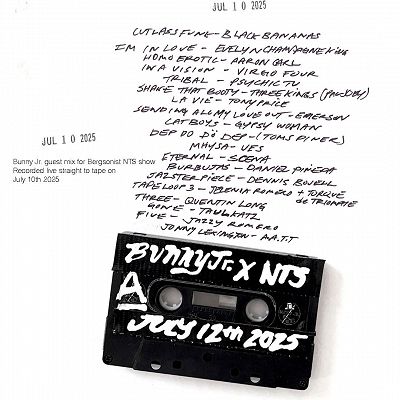 JUL 10 2025
CUTLASS FUNK - BLACK BANANAS
IM IN LOVE - EVELYN CHAMPAGNE KING
HOMO EROTIC - AARON CARL
IN A VISION - VIRGO FOUR
TRIBAL - PSYCHIC TV
SHAKE THAT BOOTY - THREE KINGS
LA VIE - TONY PRICE
SENDING ALL MY LOVE OUT - EMERSON
CATBOYS - GYPSY WOMAN
DEP DO DÖ DEP - (TOMS DINER)
MHYSA - YES
ETERNAL - SCENA
BURBUJAS - DANIEL PINEDA
JAZSTERPIECE - DENNIS BOVELL
TAPE LOOP 3 - JERENIA ROMERO + TORQUE
de TRIOMPHE
THREE - QUENTIN LONG
GONE - TAUL KATZ
FIVE - JAZZY ROMERO
JONNY LEXINGTON - A.R.T.T
JUL 10 2025
Bunny Jr. guest mix for Bergsonist NTS show
Recorded live straight to tape on
July 10th 2025
BUNNY Jr. X NTS
A
JULY 12th 2025